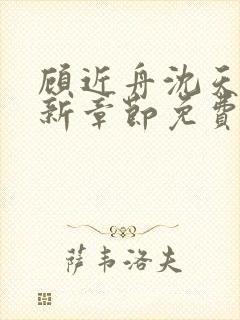 顾近舟沈天
新章节免费
萨韦洛夫